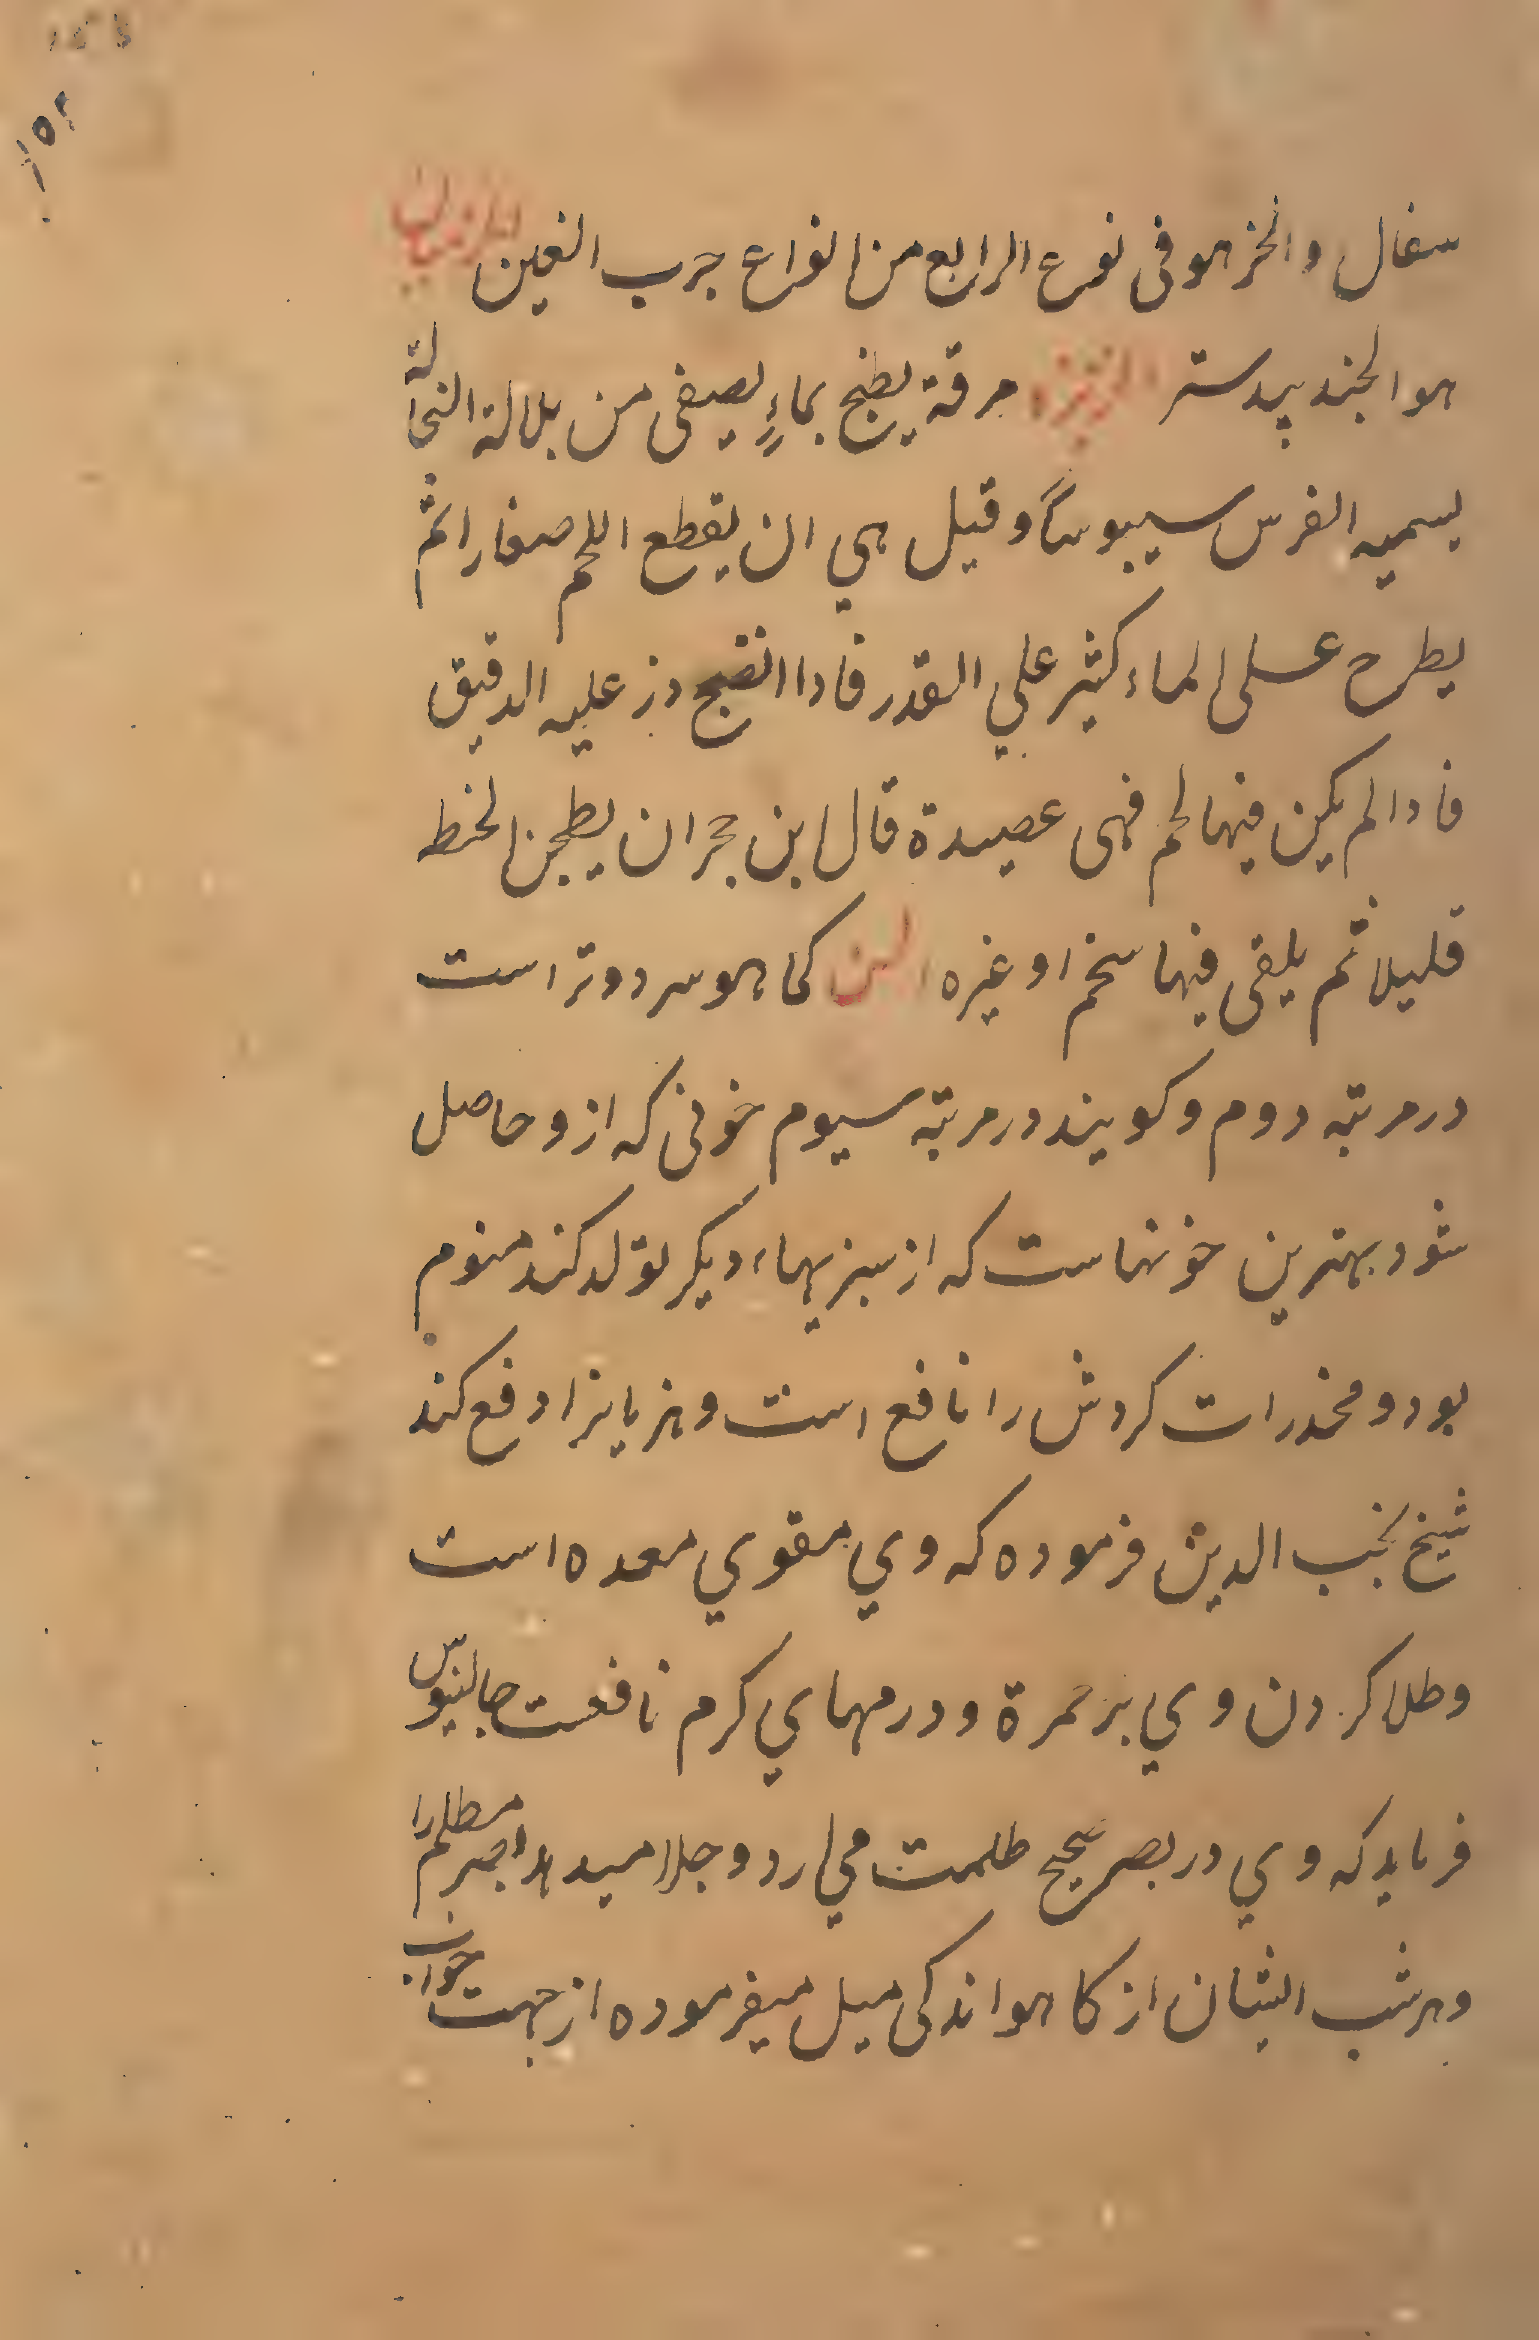 سفال والخزهو فى نوع الرابع من انواع جرب العين
هو الجند بيدستر الخزيره مرقة يطبخ بماءٍ يصفى من بلالة النخالة
يسميه الفرس سيبوساً وقيل هي ان يقطع اللحم صغارا ثم
يطرح على الماء كثير علي القدر فادا انضج درّ عليه الدقيق
فادا لم يكن فيها لحم فهى عصيدة قال ابن حجر ان يطحن الخط
قليلا ثم يلقى فيها سخم او غيره الخس كاهو سرد و تر است
در مرتبه دوم و كويند در مرتبه سيوم خونى كه ازو حاصل
شود بهترين خونهاست كه از سبزيهاء ديكر تولد كند منوم
بود و مخدرات كردش را نافع است و هزيانرا دفع كند
شيخ نجيب الدين فرموده كه وي مقوي معده است
وطلا كردن وي بر حمرة و ورمهاي كرم نافعست جالينوس
فرمايد كه وي در بصر صحيح ظلمت مي ارد و جلا ميدهد بصر مظلم را
و هر شب ايشان از كاهو اندكى ميل ميفرموده از جهت خواب